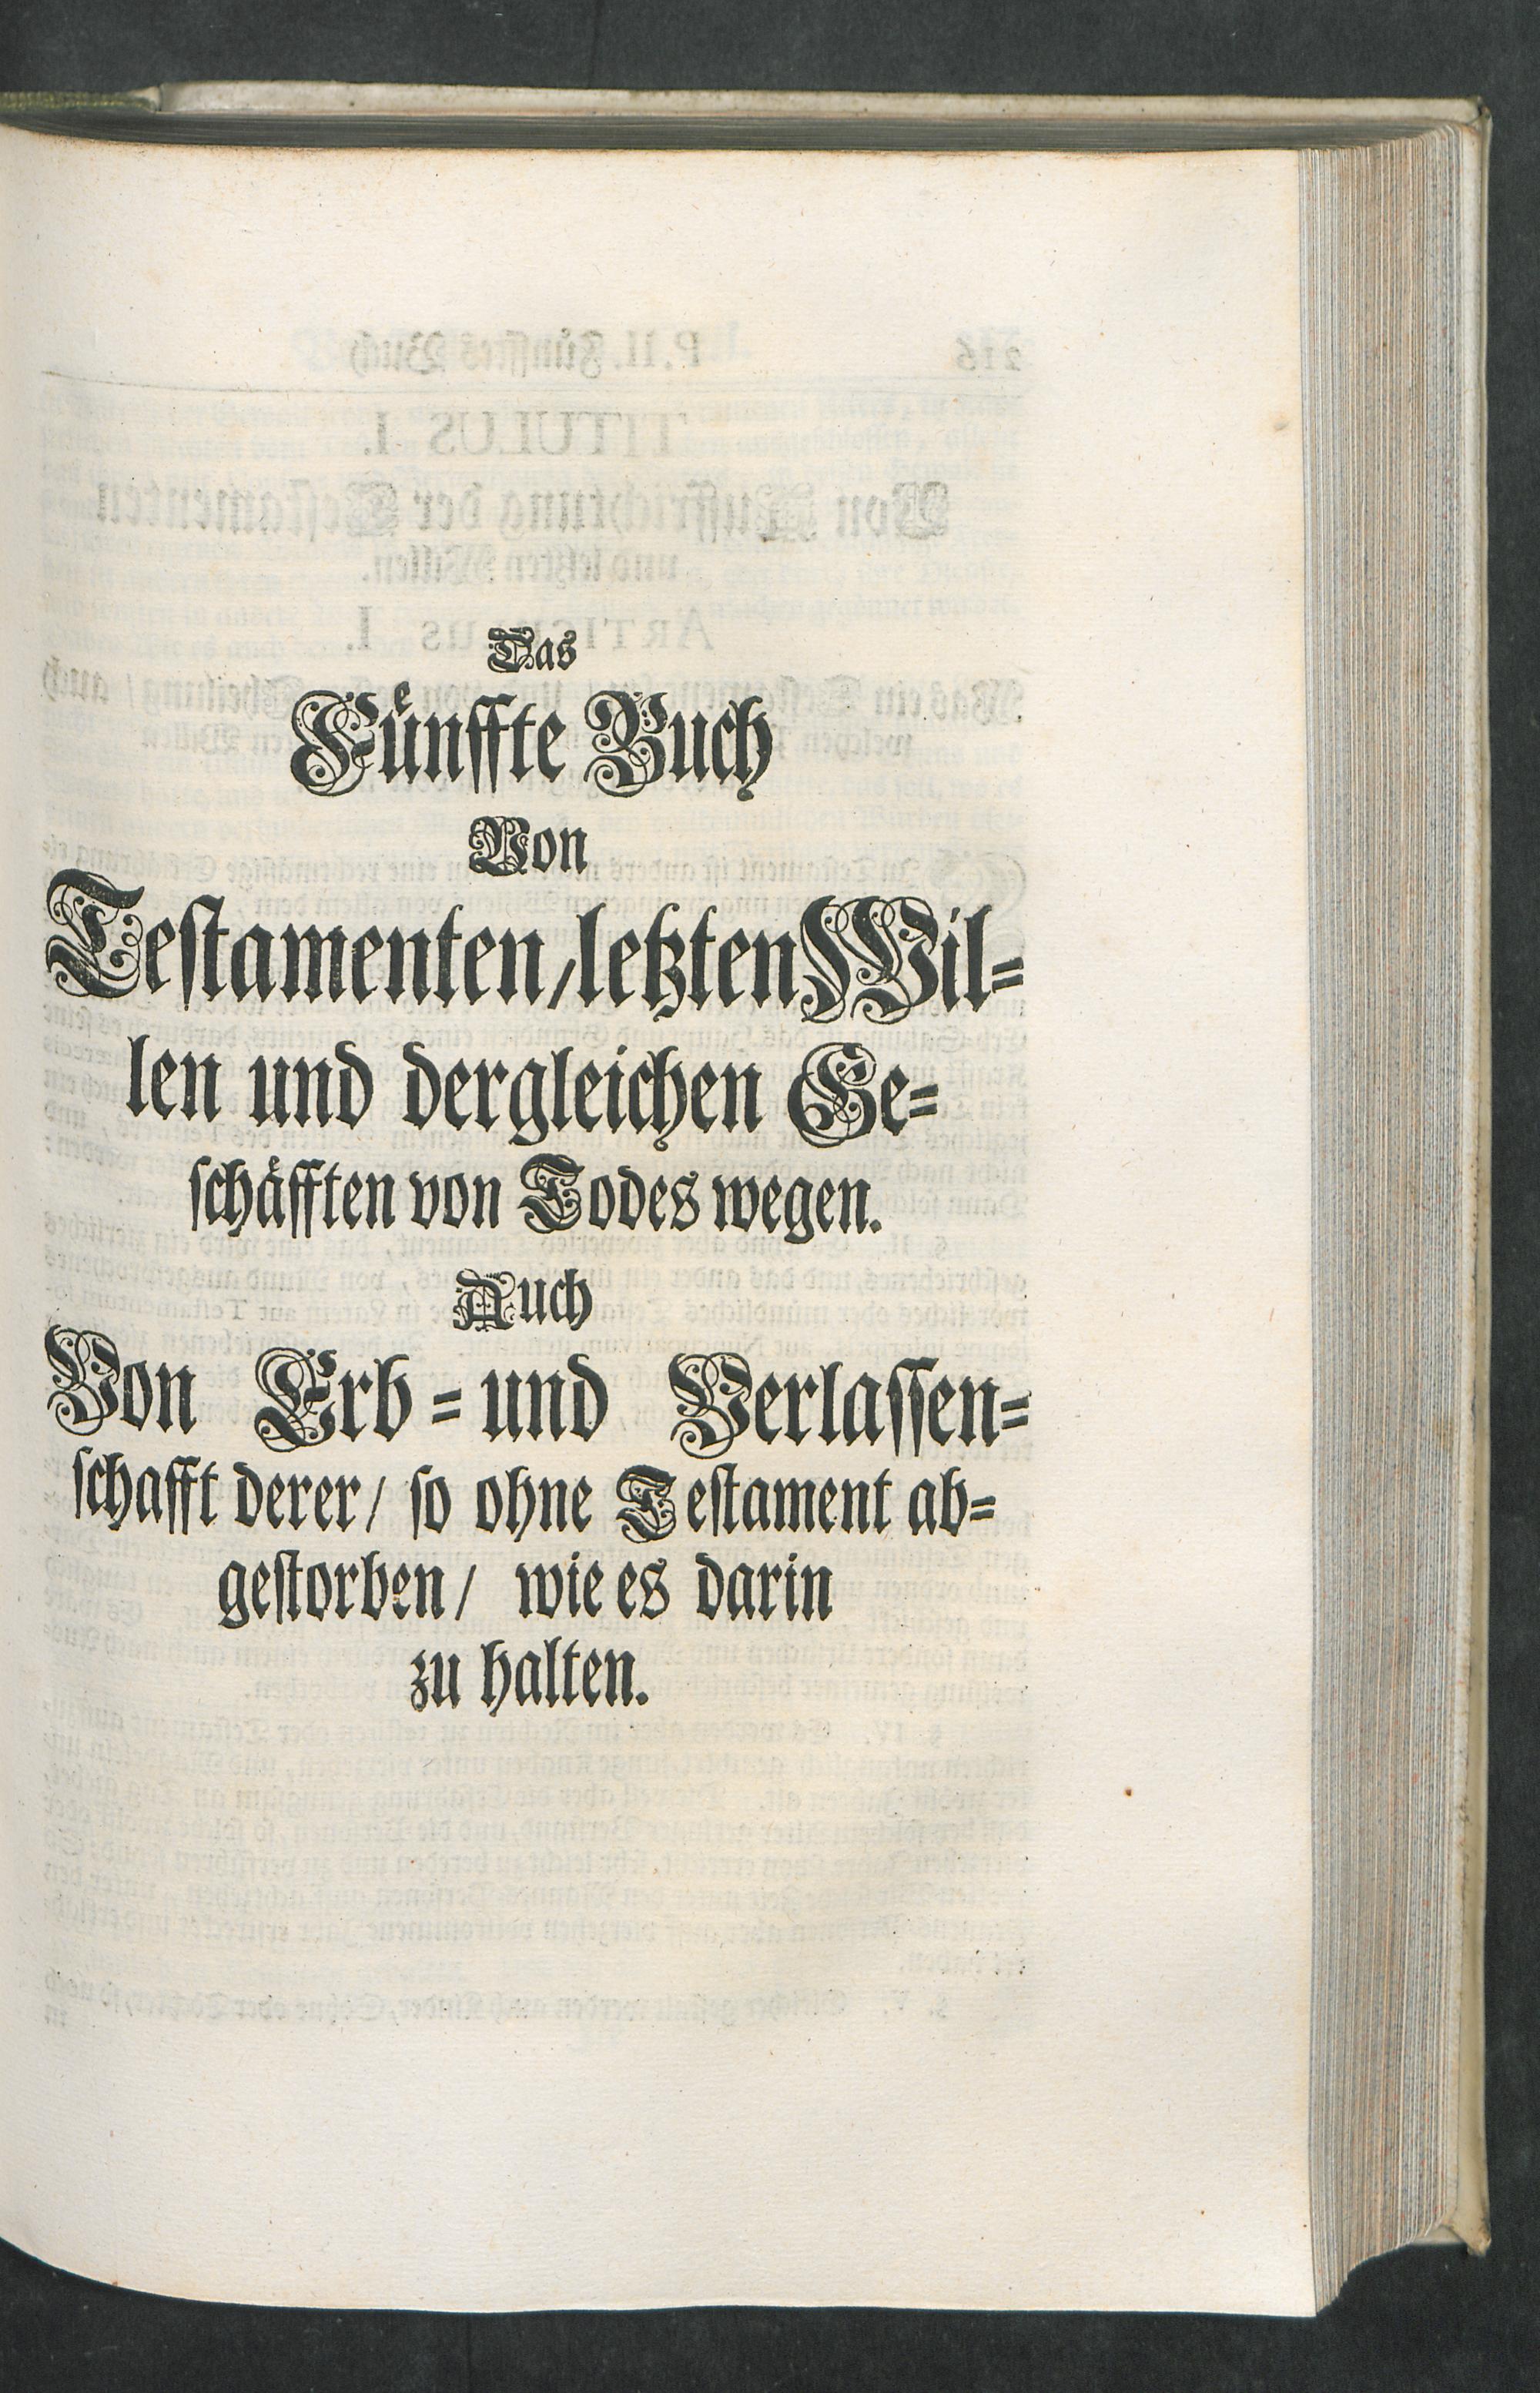 Das
Fuͤnffte Buch
Von
Teſtamenten/letzten Wil-
len und dergleichen Ge-
ſchaͤfften von Todes wegen.
Auch
Von Erb- und Verlaſſen-
ſchafft derer/ ſo ohne Teſtament ab-
geſtorben/ wie es darin
zu halten.